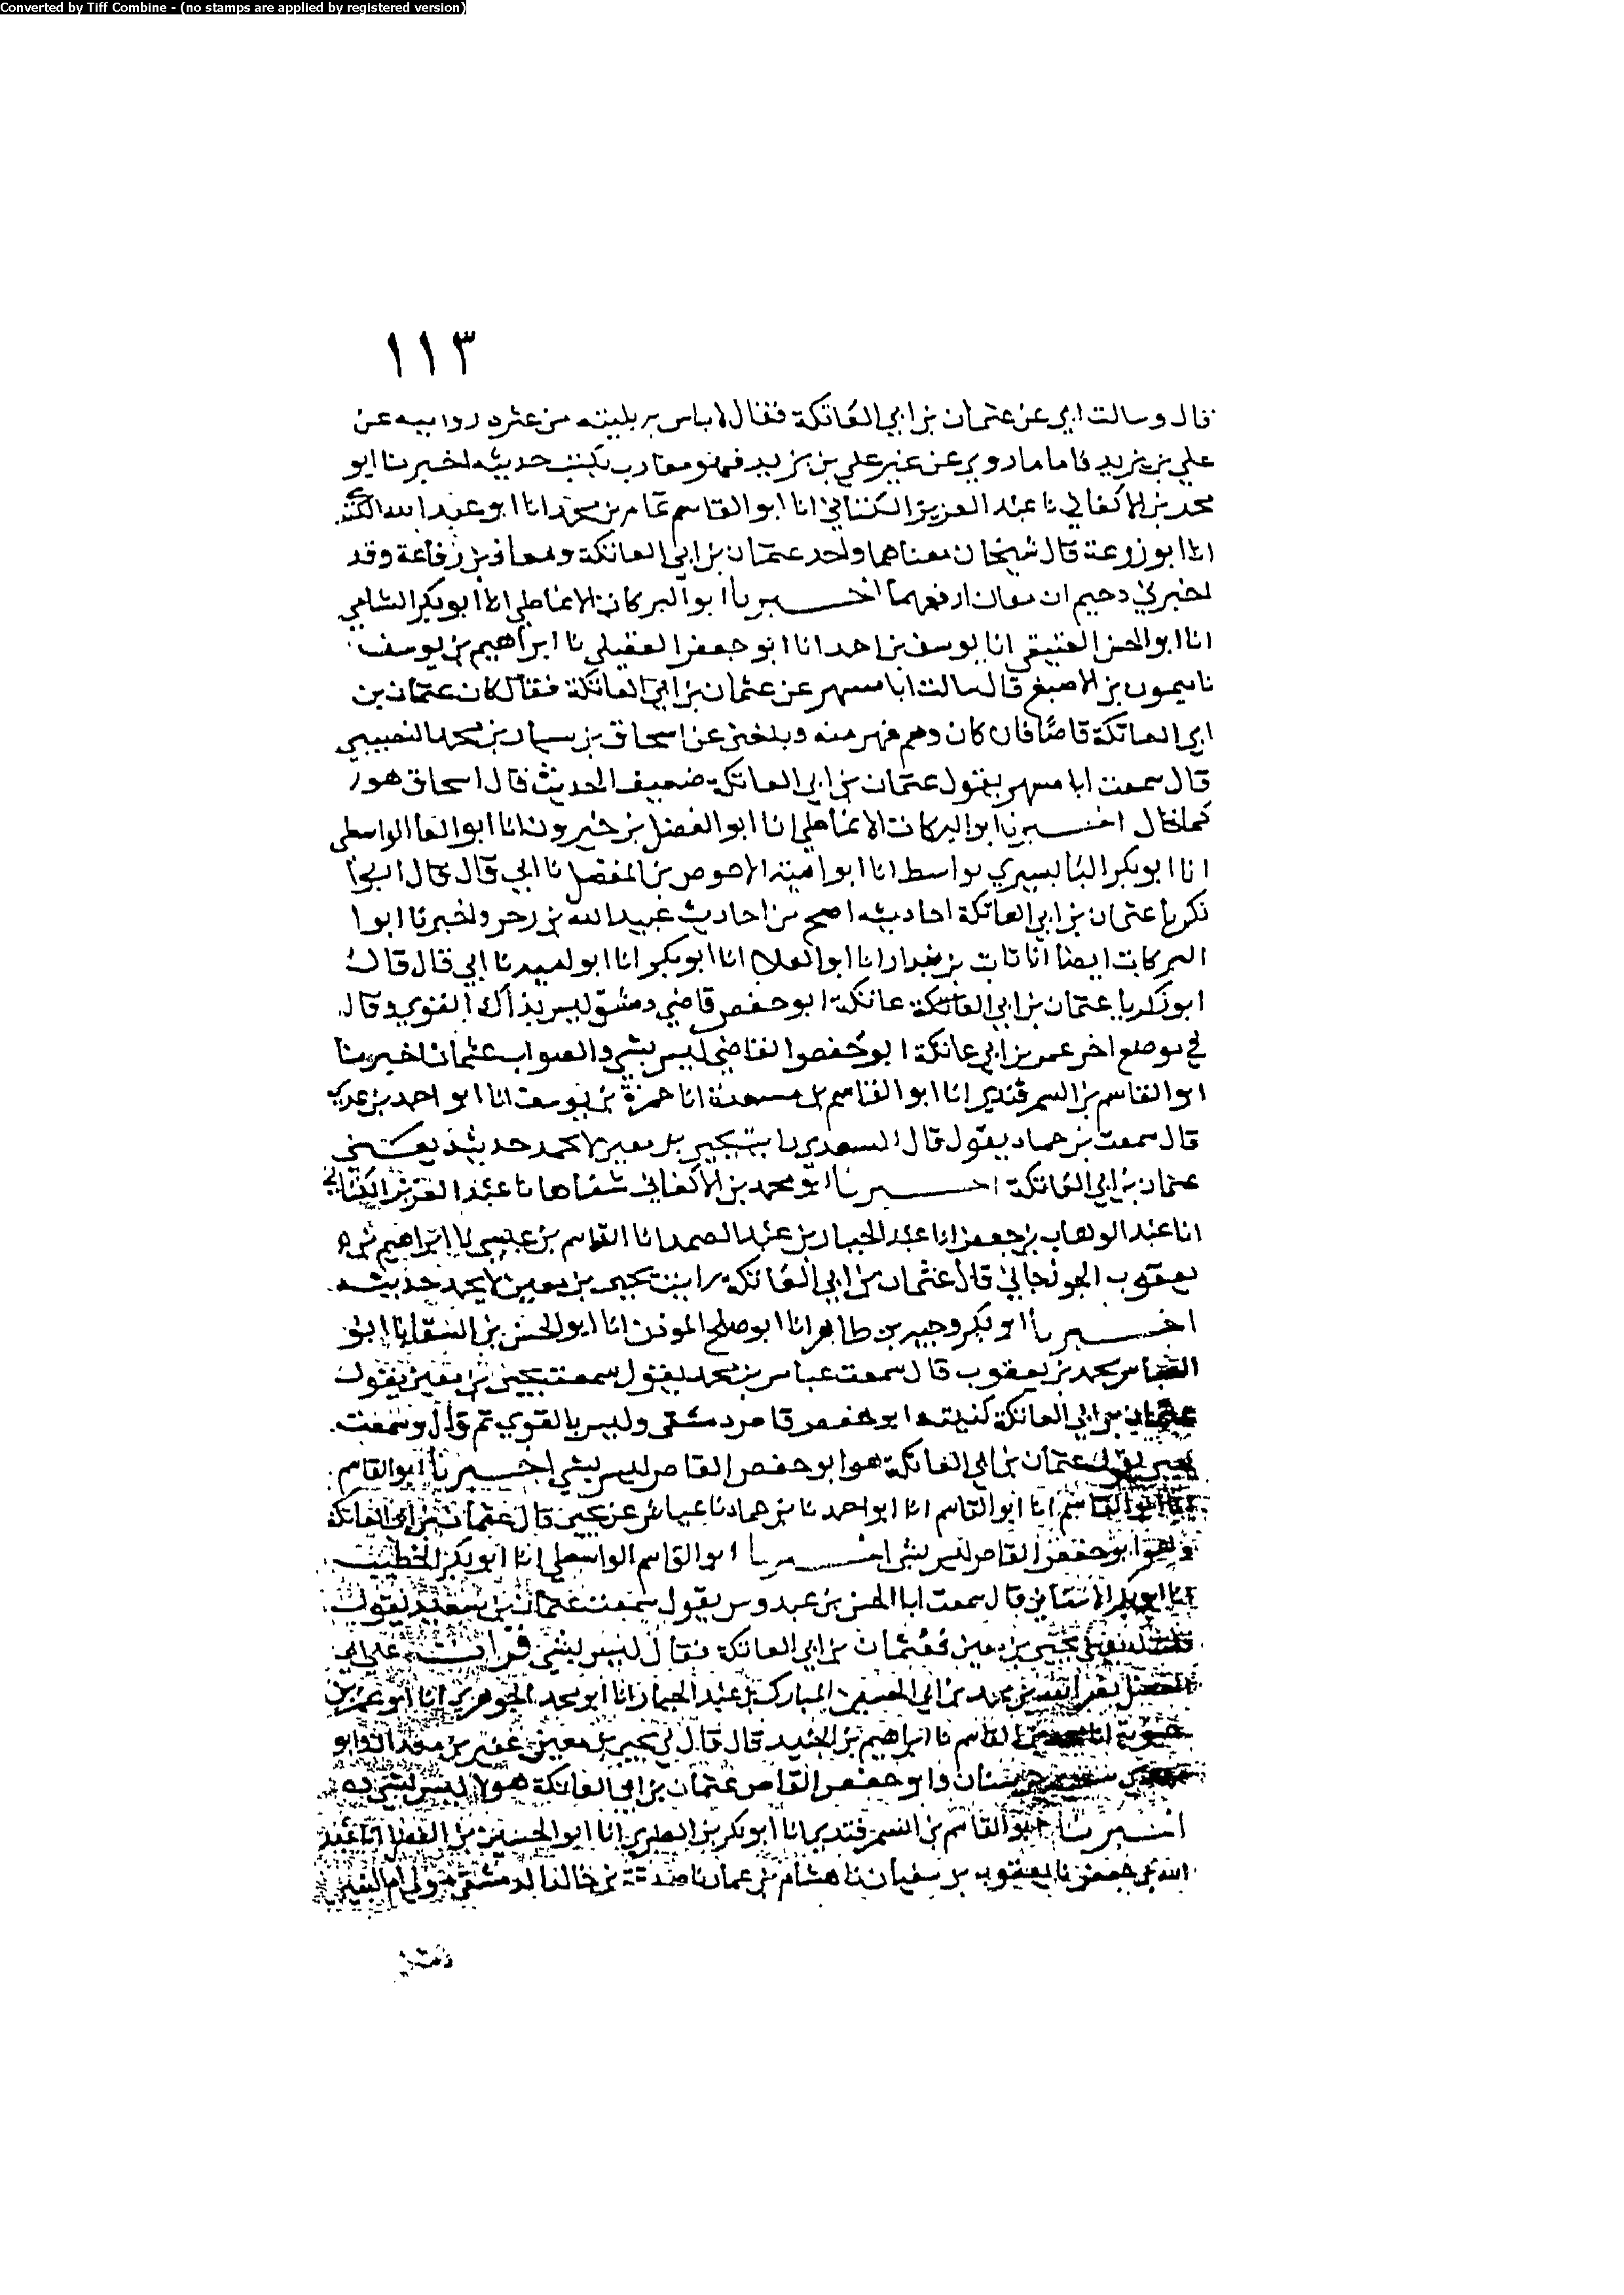 Converted by Tiff Combine - (no stamps are applied by registered version)
١١٣
قال وسالت ابي عن عثمان بن ابي العاتكة فقال لا باس به بليته من عثره روايته عن
علي بن يزيد فاما ما روي عن غير علي بن يزيد فهو مقارب يكتب حديثه اخبرنا ابو
محمد بن الاكفاني نا عبد العزيز الكتاني انا ابو القاسم تمام بن محمد انا ابو عبد الله الكندي
انا ابو زرعة قال شيخان معناهما واحد عثمان بن ابي العاتكة ومعان بن رفاعة وقد
اخبرني دحيم ان معان ارفعهما اخبرنا ابو البركات الانماطي انا ابو بكر الشامي
انا ابو الحسن العتيقي انا يوسف بن احمد انا ابو جعفر العقيلي نا ابراهيم بن يوسف
نا ميمون بن الاصبغ قال سالت ابا مسهر عن عثمان بن ابي العاتكة فقال كان عثمان بن
ابي العاتكة قاصا فان كان وهم فهو منه وبلغني عن اسحاق بن سيار بن محمد النصيبي
قال سمعت ابا مسهر يقول عثمان بن ابي العاتكة ضعيف الحديث قال اسحاق هو
كما قال اخبرنا ابو البركات الانماطي انا ابو الفضل بن خيرون انا ابو العلا الواسطي
انا ابو بكر البابسيري بواسط انا ابو امية الاحوص بن المفضل نا ابي قال قال ابو
زكريا عثمان بن ابي العاتكة احاديثه اصح من احاديث عبيد الله بن زحر واخبرنا ابو
البركات ايضا انا ثابت بن بندار انا ابو العلا انا ابو بكر انا ابو امية نا ابي قال قال
ابو زكريا عثمان بن ابي العاتكة عاتكة ابو حفص قاضي دمشق ليس بذاك القوي وقال
في موضع اخر عمر بن ابي عاتكة ابو حفص القاضي ليس بشي والصواب عثمان اخبرنا
ابو القاسم بن السمرقندي انا ابو القاسم بن مسعدة انا حمزة بن يوسف انا ابو احمد بن عدي
قال سمعت بن حماد يقول قال السعدي يحيى بن معين لا يحمد حديثه يعني
عثمان بن ابي العاتكة اخبرنا ابو محمد بن الاكفاني شفاها نا عبد العزيز الكتاني
انا عبد الوهاب بن جعفر انا عبد الجبار بن عبد الصمد انا القاسم بن عيسى نا ابراهيم بن
يعقوب الجوزجاني قال عثمان بن ابي العاتكة رايت يحيى بن معين لا يحمد حديثه
اخبرنا ابو بكر وجيه بن طاهر انا ابو صالح الموذن انا ابو الحسن بن السقا نا ابو
العباس محمد بن يعقوب قال سمعت عباس بن محمد يقول سمعت يحيى بن معين يقول
عثمان بن ابي العاتكة كنيته ابو حفص قاص دمشق وليس بالقوي ثم قال وسمعت
يحيى يقول عثمان بن ابي العاتكة هو ابو حفص القاص ليس بشي اخبرنا ابو القاسم
انا ابو القاسم انا ابو القاسم انا ابو احمد نا بن حماد نا عباس عن يحيى قال عثمان بن ابي العاتكة
وهو ابو حفص القاص ليس بشي اخبرنا ابو القاسم الواسطي انا ابو بكر الخطيب
انا ابو بكر الاشناني قال سمعت ابا الحسن بن عبدوس يقول سمعت عثمان بن سعيد يقول
قلت ليحيى بن معين فعثمان بن ابي العاتكة فقال ليس بشي قرات على ابي
الفضل بن محمد بن ابي الحسين المبارك بن عبد الجبار انا ابو محمد الجوهري انا ابو عمر بن
حيوية انا محمد بن القاسم نا ابراهيم بن الجنيد قال قال لي يحيى بن معين عفير بن معدان وابو
مهدي سعيد بن سنان وابو حفص القاص عثمان بن ابي العاتكة هولا ليس بشي
اخبرنا ابو القاسم بن السمرقندي انا ابو بكر بن الطبري انا ابو الحسين بن الفضل انا عبد
الله بن جعفر نا يعقوب بن سفيان نا هشام بن عمار نا صدقة بن خالد الدمشقي مولى ام البنين